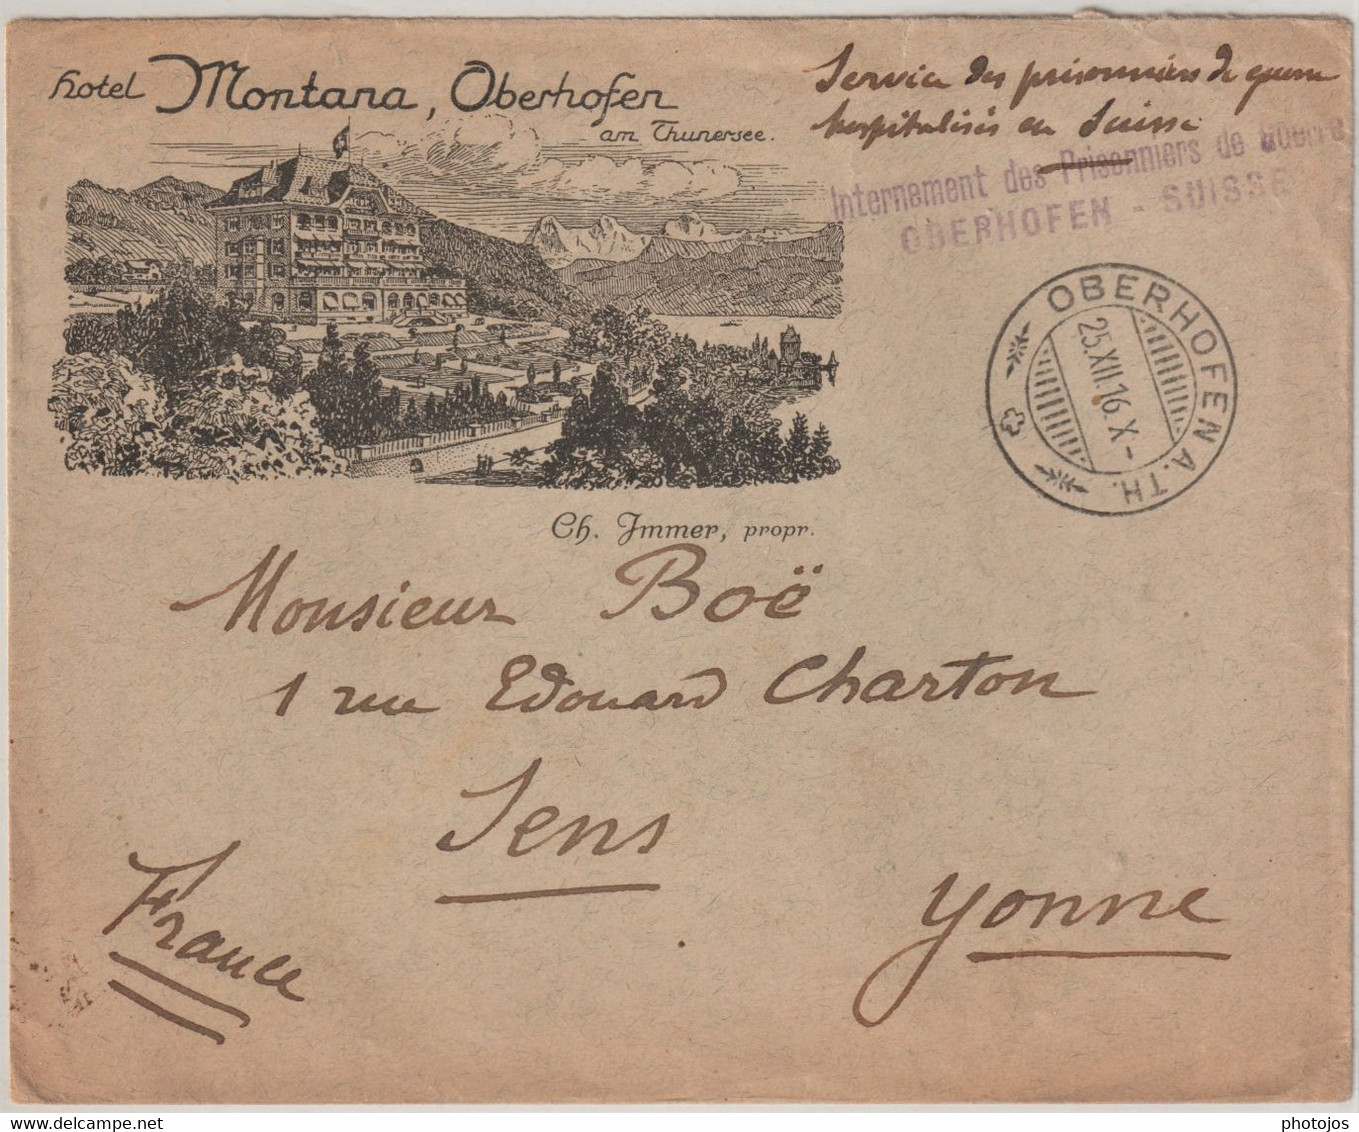 Hotel Montana, Oberhofen
am Thunersee.
Service des prisonniers de guerre
hospitalisés en Suisse
Internement des Prisonniers de Guerre
OBERHOFEN - SUISSE
OBERHOFEN A. TH.
25.XII.16.X-
Ch. Immer, propr.
Monsieur Boë
1 rue Edouard Charton
Sens
Yonne
France
delcampe.net
photojos